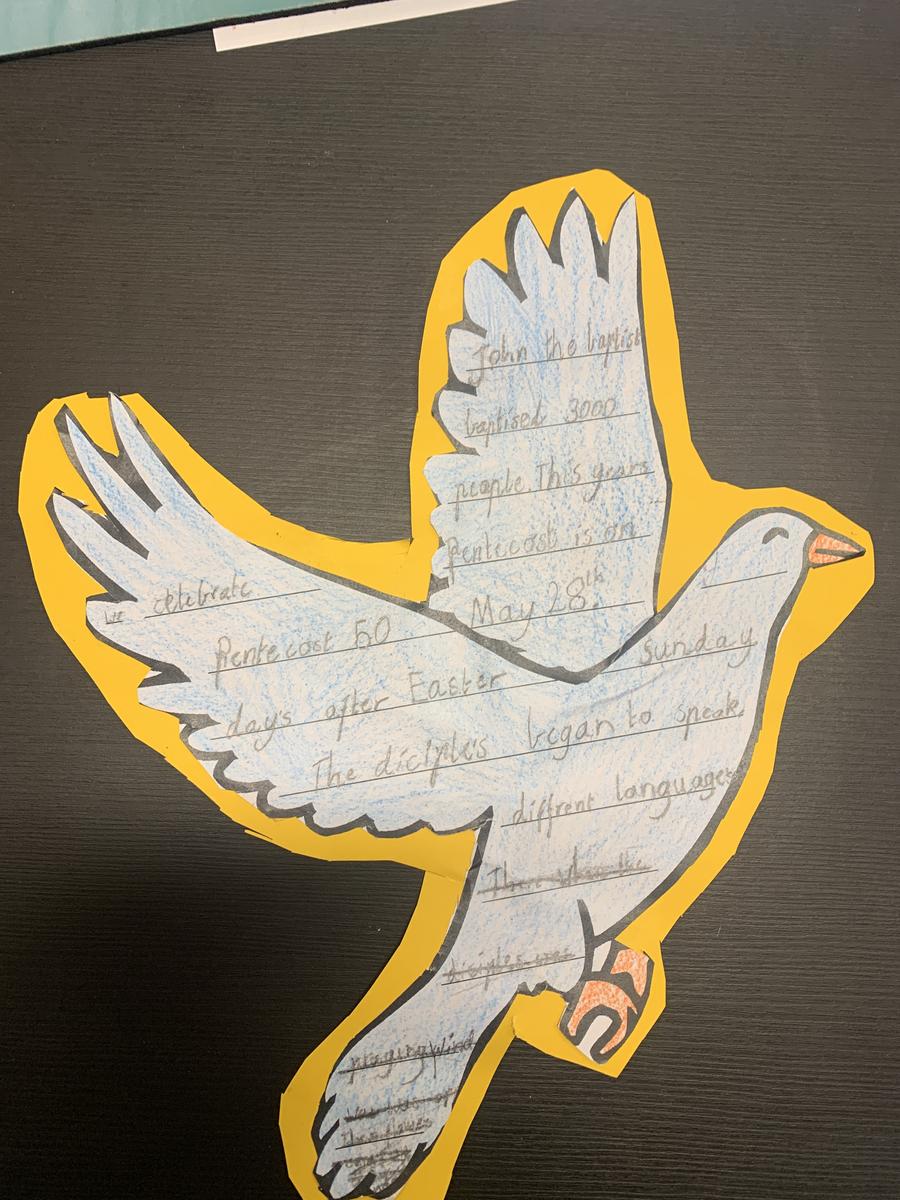 John the baptist
baptised 3000
people This years
Pentecost is on
May 28th.
we celebrate
Pentecost 50
days after Easter sunday
The diciples began to speak
diffrent languages
The when the
disciples was
praying wind